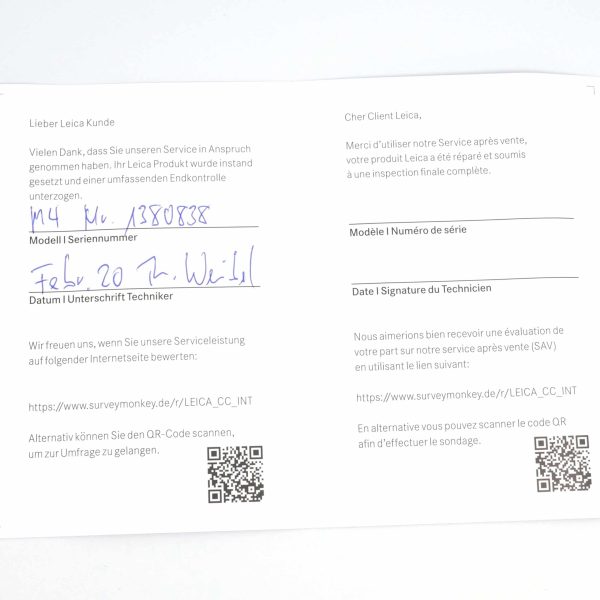 Lieber Leica Kunde
Vielen Dank, dass Sie unseren Service in Anspruch
genommen haben. Ihr Leica Produkt wurde instand
gesetzt und einer umfassenden Endkontrolle
unterzogen.
M4 Nr. 1380838
Modell I Seriennummer
Febr. 20 Th. Weibel
Datum I Unterschrift Techniker
Wir freuen uns, wenn Sie unsere Serviceleistung
auf folgender Internetseite bewerten:
https://www.surveymonkey.de/r/LEICA_CC_INT
Alternativ können Sie den QR-Code scannen,
um zur Umfrage zu gelangen.
Cher Client Leica,
Merci d'utiliser notre Service après vente,
votre produit Leica a été réparé et soumis
à une inspection finale complète.
Modèle I Numéro de série
Date I Signature du Technicien
Nous aimerions bien recevoir une évaluation de
votre part sur notre service après vente (SAV)
en utilisant le lien suivant:
https://www.surveymonkey.de/r/LEICA_CC_INT
En alternative vous pouvez scanner le code QR
afin d'effectuer le sondage.